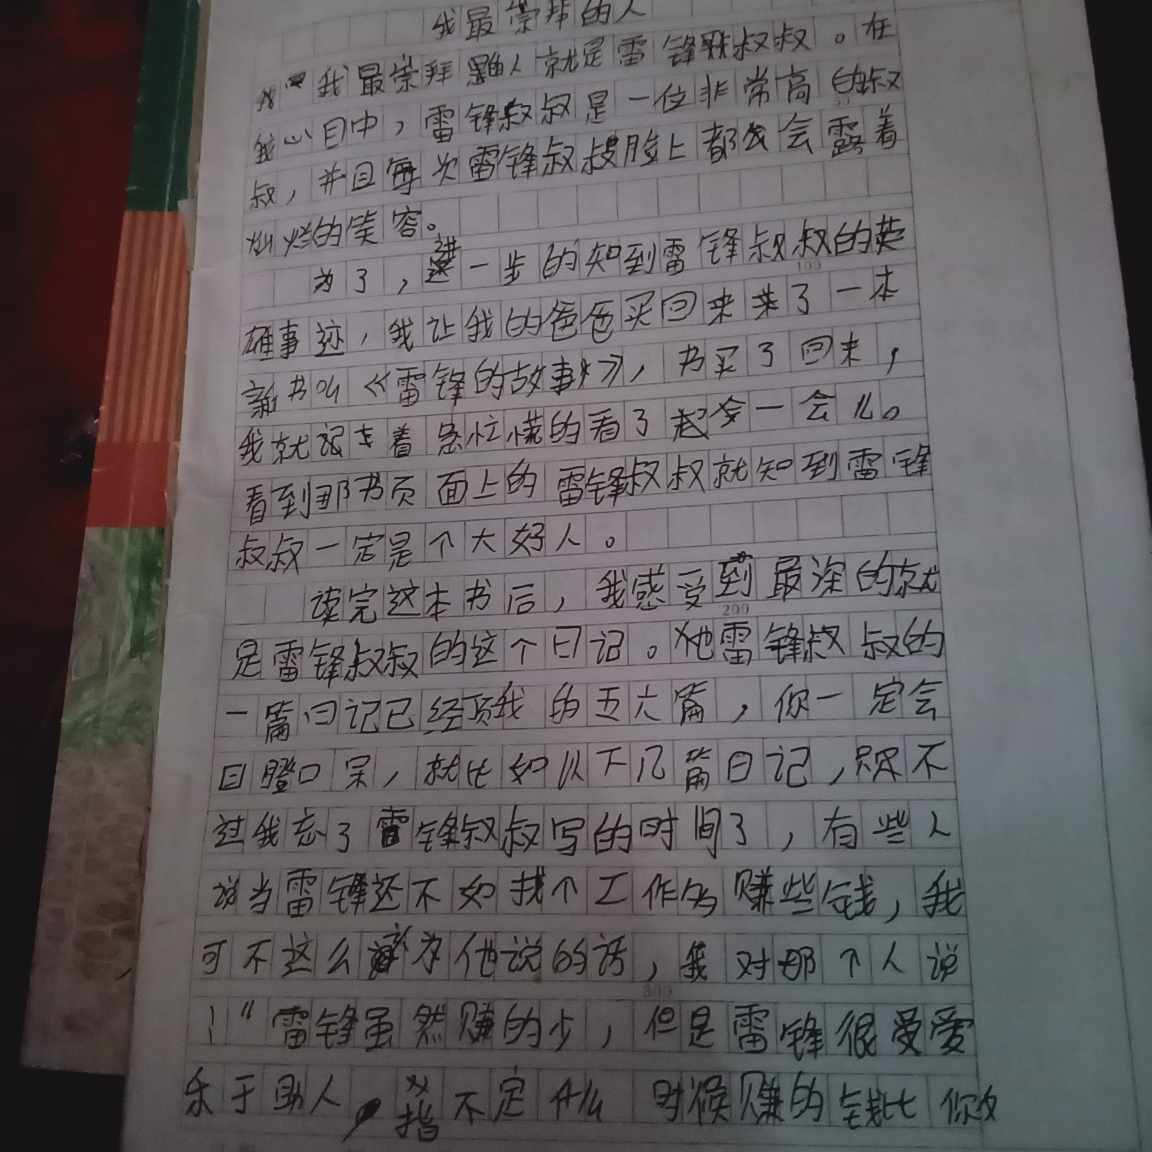 我最崇拜的人
我最崇拜的人就是雷锋叔叔。在
我心目中，雷锋叔叔是一位非常高的叔
叔，并且每次雷锋叔叔脸上都会露着
灿烂的笑容。
为了，进一步的知到雷锋叔叔的英
雄事迹，我让我的爸爸买回来了一本
新书叫《雷锋的故事》，书买了回来，
我就急忙慌的看了起一会儿。
看到那书页面上的雷锋叔叔就知到雷锋
叔叔一定是个大好人。
读完这本书后，我感受到最深的就
是雷锋叔叔的这个日记。他雷锋叔叔的
一篇日记已经顶我的五六篇，你一定会
目瞪口呆，就比如以下几篇日记，只不
过我忘了雷锋叔叔写的时间了，有些人
说当雷锋还不如找个工作多赚些钱，我
可不这么认为他说的话，我对那个人说
：“雷锋虽然赚的少，但是雷锋很受爱
乐于助人，指不定什么时候赚的钱比你